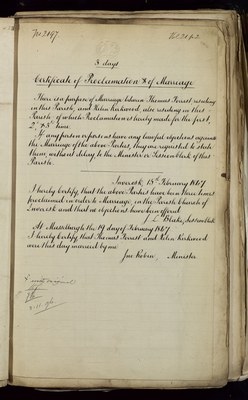 No 2047
3 days
Certificate of Proclamation & of Marriage
There is a purpose of Marriage between Thomas Forrest residing
in this Parish, and Helen Kirkwood, also residing in this
Parish of which Proclamation is hereby made for the first,
2d & 3d time.
If any person or persons have any lawful objections against
the Marriage of the above Parties, they are requested to state
them without delay to the Minister or Session Clerk of this
Parish.
Inveresk 15th February 1847
I hereby certify that the above Parties have been three times
proclaimed in order to Marriage, in the Parish Church of
Inveresk and that no objections have been offered
J. L. Blake, Session Clerk
At Musselburgh the 19 day of February 1847
I hereby Certify that Thomas Forrest and Helen Kirkwood
were that day married by me
Minister